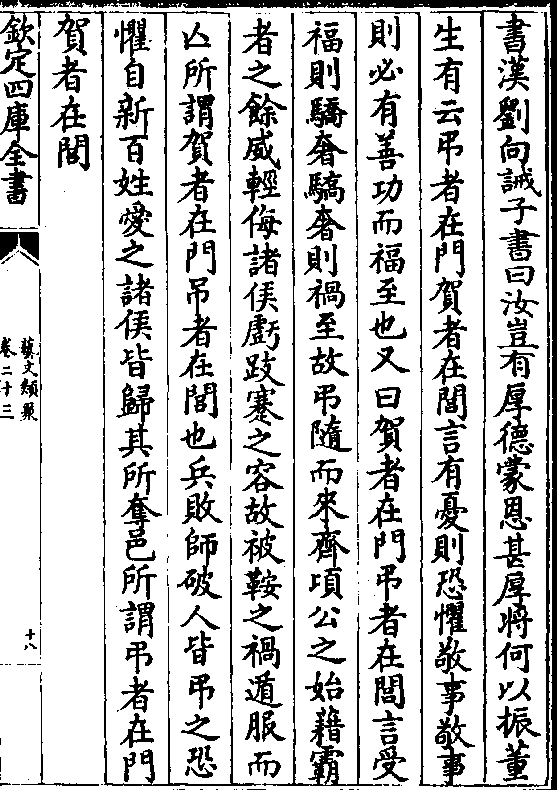 書漢劉向誡子書曰汝豈有厚德蒙恩甚厚將何以振董
生有云弔者在門賀者在閭言有憂則恐懼敬事敬事
則必有善功而福至也又曰賀者在門弔者在閭言受
福則驕奢驕奢則禍至故弔隨而來齊頃公之始藉霸
者之餘威輕侮諸侯虧跂蹇之容故被鞍之禍遁服而
亾所謂賀者在門吊者在閭也兵敗師破人皆弔之恐
懼自新百姓愛之諸侯皆歸其所奪邑所謂弔者在門
賀者在閭
欽定四庫全書
藝文類聚
卷二十三
十八